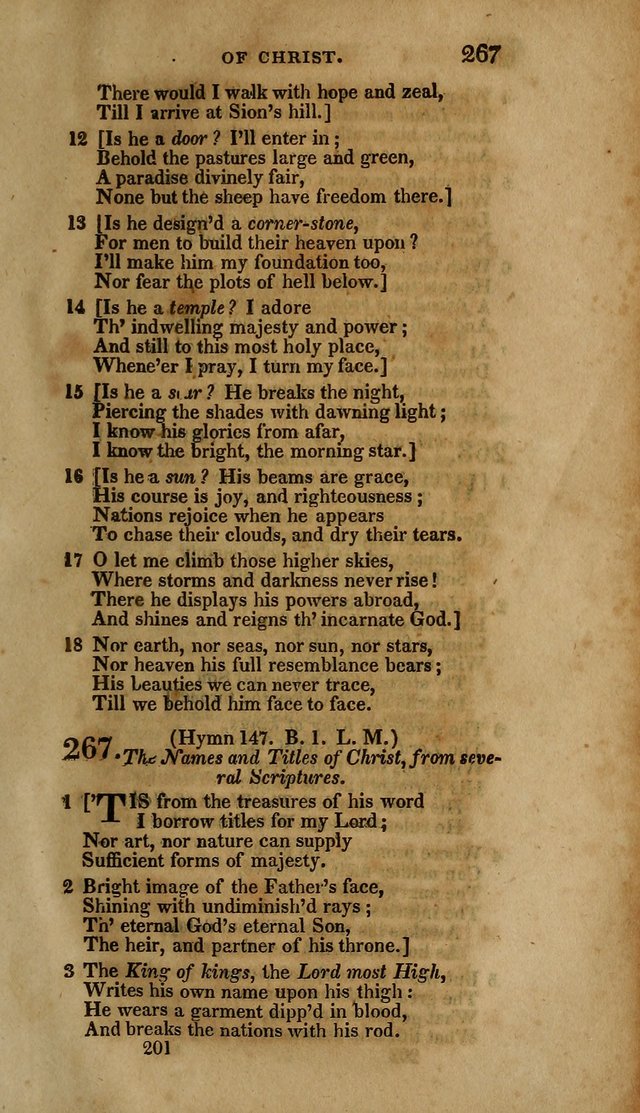 OF CHRIST. 267
There would I walk with hope and zeal,
Till I arrive at Sion's hill.]
12 [Is he a door? I'll enter in;
Behold the pastures large and green,
A paradise divinely fair,
None but the sheep have freedom there.]
13 [Is he design'd a corner-stone,
For men to build their heaven upon?
I'll make him my foundation too,
Nor fear the plots of hell below.]
14 [Is he a temple? I adore
Th' indwelling majesty and power;
And still to this most holy place,
Whene'er I pray, I turn my face.]
15 [Is he a star? He breaks the night,
Piercing the shades with dawning light;
I know his glories from afar,
I know the bright, the morning star.]
16 [Is he a sun? His beams are grace,
His course is joy, and righteousness;
Nations rejoice when he appears
To chase their clouds, and dry their tears.
17 O let me climb those higher skies,
Where storms and darkness never rise!
There he displays his powers abroad,
And shines and reigns th' incarnate God.]
18 Nor earth, nor seas, nor sun, nor stars,
Nor heaven his full resemblance bears;
His beauties we can never trace,
Till we behold him face to face.
267. (Hymn 147. B. 1. L. M.)
The Names and Titles of Christ, from seve-
ral Scriptures.
1 ['TIS from the treasures of his word
I borrow titles for my Lord;
Nor art, nor nature can supply
Sufficient forms of majesty.
2 Bright image of the Father's face,
Shining with undiminish'd rays;
Th' eternal God's eternal Son,
The heir, and partner of his throne.]
3 The King of kings, the Lord most High,
Writes his own name upon his thigh:
He wears a garment dipp'd in blood,
And breaks the nations with his rod.
201